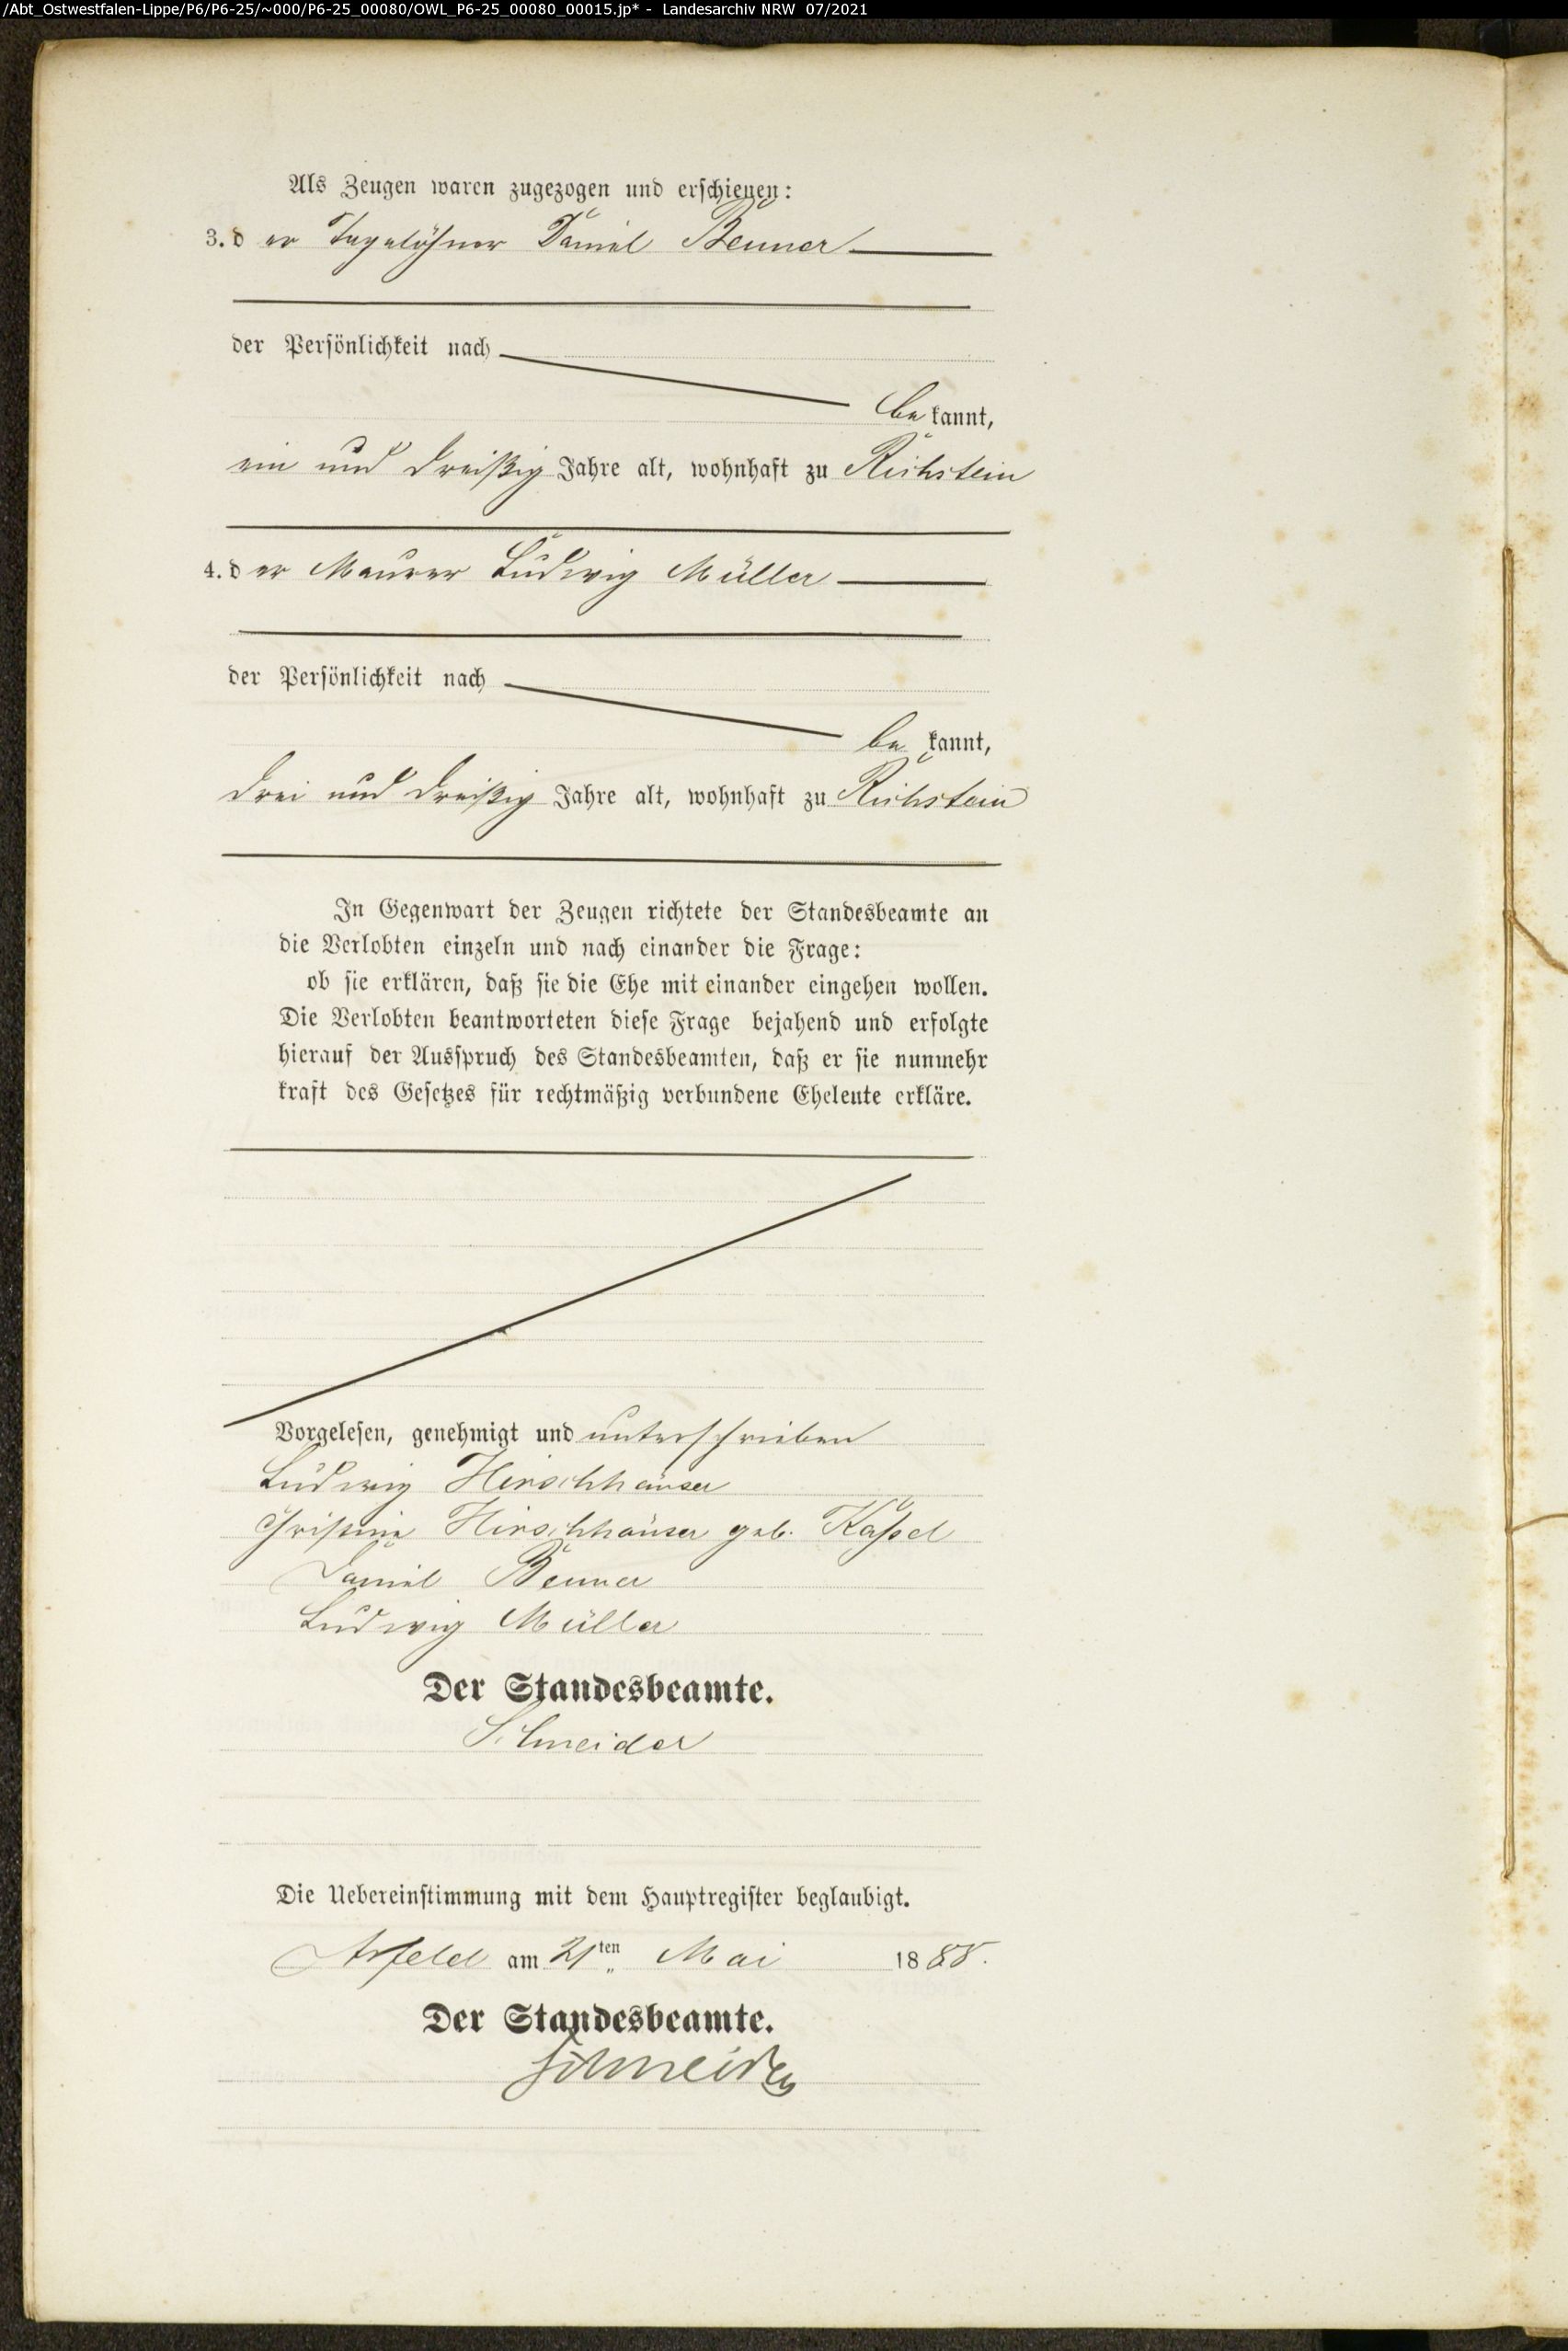 /Abt_Ostwestfalen-Lippe/P6/P6-25/~000/P6-25_00080/OWL_P6-25_00080_00015.jp* - Landesarchiv NRW 07/2021
Als Zeugen waren zugezogen und erschienen:
3. der Tagelöhner Daniel Benner
der Persönlichkeit nach
bekannt,
ein und dreißig Jahre alt, wohnhaft zu Richstein
4. der Maurer Ludwig Müller
der Persönlichkeit nach
bekannt,
drei und dreißig Jahre alt, wohnhaft zu Richstein
In Gegenwart der Zeugen richtete der Standesbeamte an
die Verlobten einzeln und nach einander die Frage:
ob sie erklären, daß sie die Ehe mit einander eingehen wollen.
Die Verlobten beantworteten diese Frage bejahend und erfolgte
hierauf der Ausspruch des Standesbeamten, daß er sie nunmehr
kraft des Gesetzes für rechtmäßig verbundene Eheleute erkläre.
Vorgelesen, genehmigt und unterschrieben
Ludwig Hirschhäuser
Christine Hirschhäuser geb. Kaßel
Daniel Benner
Ludwig Müller
Der Standesbeamte.
Schneider
Die Uebereinstimmung mit dem Hauptregister beglaubigt.
Arfeld am 21ten Mai 1888.
Der Standesbeamte.
Schneider